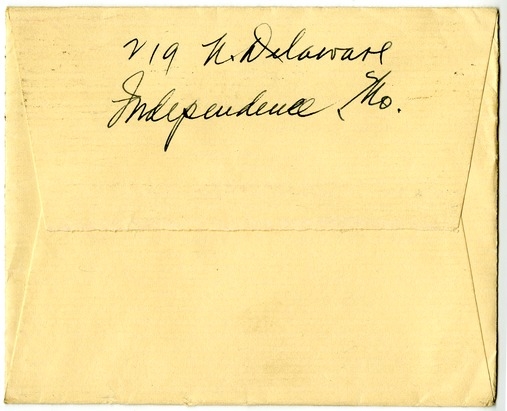 219 N. Delaware
Independence, Mo.